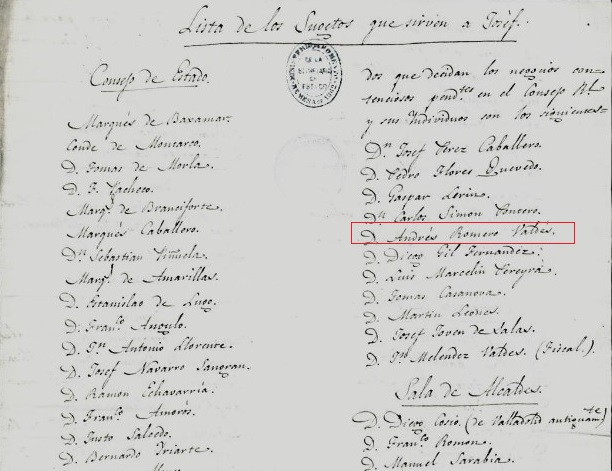 Lista de los Sugetos que sirven a Josèf.
Consejo de Estado.
Marqués de Baxamar.
Conde de Montarco.
D. Tomas de Morla.
D. F. Pacheco.
Marq.s de Branciforte.
Marqués Caballero.
D.n Sebastian Piñuela.
Marq.s de Amarillas.
D. Estanislao de Lugo.
D. Fran.co Angulo.
D. J.n Antonio Llorente.
D. Josef Navarro Sangran.
D. Ramon Echavarria.
D. Fran.co Amorós.
D. Justo Salcedo.
D. Bernardo Iriarte.
dos que decidan los negocios con-
tenciosos pend.tes en el Consejo R.l
y sus Individuos son los siguientes=
D.n Josef Perez Caballero.
D. Pedro Flores Quevedo.
D. Gaspar Lerin.
D.n Carlos Simon Pontero.
D. Andrés Romero Valdés.
D. Diego Gil Fernandez:
D. Luis Marcelin Pereyra.
D. Tomas Casanova.
D. Martin Leones.
D. Josef Joven de Salas.
D. J.n Melendez Valdes. (Fiscal.)
Sala de Alcaldes.
D. Diego Cosio, (de Valladolid antiguam.te)
D. Fran.co Romon.
D. Manuel Sarabia.